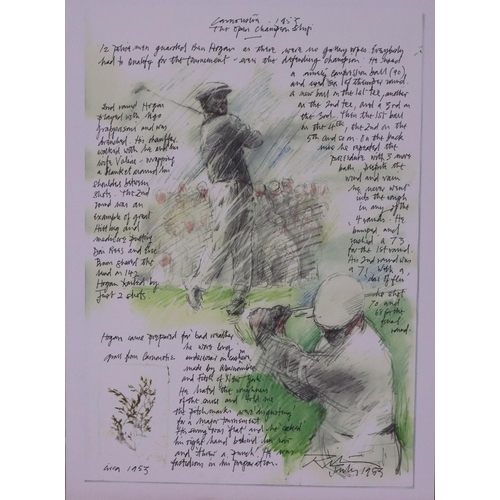 Carnoustie . 1953
The Open Championship
12 policemen guarded Ben Hogan as there were no gallery ropes Everybody
had to qualify for the tournament - even the defending champion. He used
a compression ball (90)
and used
a new ball on the 1st tee, another
on the 2nd tee, and a 3rd on
the 3rd. Then the 1st ball
on the 4th, the 2nd on the
5th and so on. On the back
nine he repeated the
procedure with 3 more
balls despite the
wind and rain
he never went
into the rough
in any of the
4 rounds. He
and
a 73
for the 1st round.
His 2nd round was
a 71 with a
he shot
70 and
68 for the
final
round.
2nd round Hogan
played with Hugo
and was
His chauffeur
walked with he and his
wife Valerie - wrapping
a blanket around his
shoulders between
shots. The 2nd
round was an
example of great
hitting and
mediocre putting
Dai Rees and
shared the
lead on 142
Hogan trailed by
just 2 shots
Hogan came prepared for bad weather
he wore long
underwear in cashmere,
made by Abercrombie
and Fitch of New York
He hated the roughness
of the course and told me
the pitchmarks were 'disgusting'
for a major tournament
swing was flat and he
his right hand behind his
and 'threw a punch'. He was
fastidious in his preparation.
grass from Carnoustie
circa 1953
July 1953